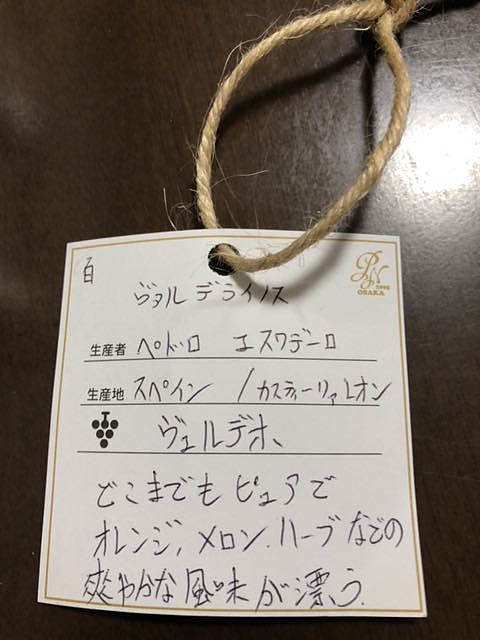 白
ヴァル デ ライノス
OSAKA
生産者 ペドロ エスクデーロ
生産地 スペイン / カスティーリァレオン
ヴェルデホ、
どこまでもピュアで
オレンジ、メロン、ハーブなどの
爽やかな風味が漂う.